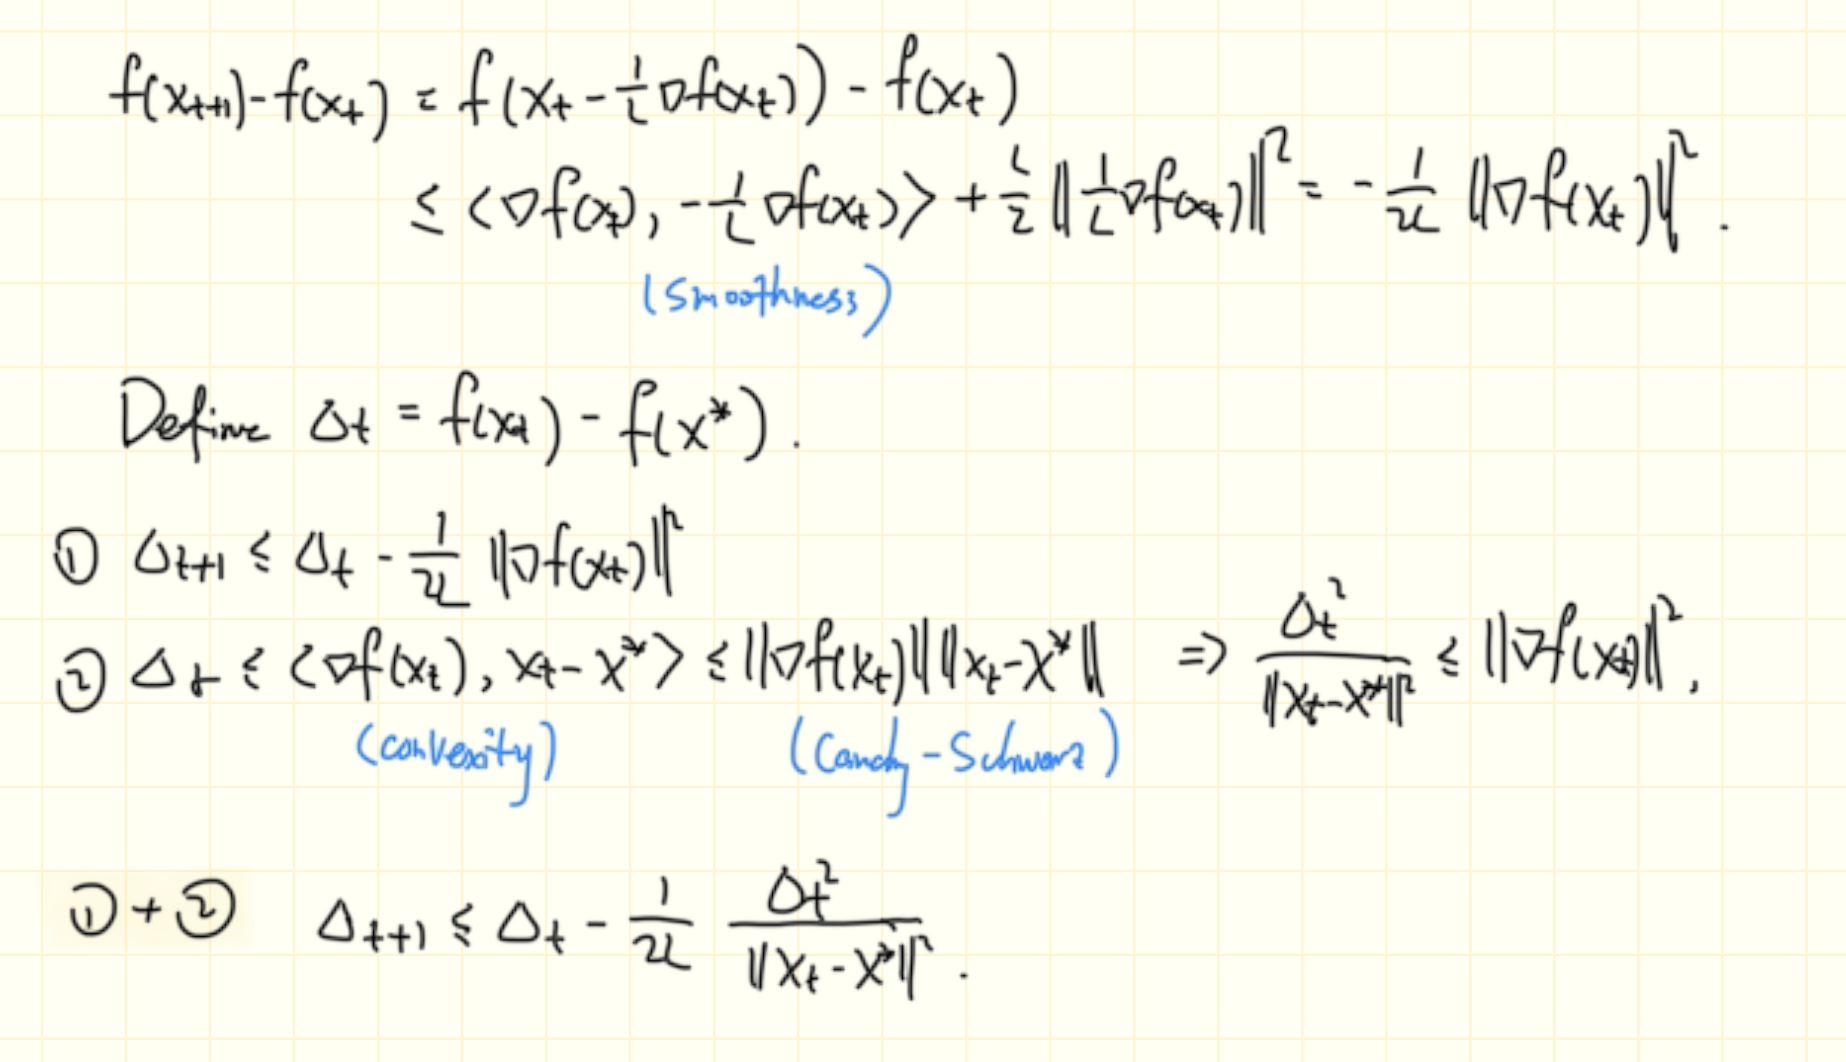 f(x_{t+1}) - f(x_t) = f(x_t - \frac{1}{L} ∇f(x_t)) - f(x_t)
≤ ⟨∇f(x_t), -\frac{1}{L} ∇f(x_t)⟩ + \frac{L}{2} ‖\frac{1}{L} ∇f(x_t)‖^2 = -\frac{1}{2L} ‖∇f(x_t)‖^2 .
(Smoothness)
Define Δ_t = f(x_t) - f(x^*) .
① Δ_{t+1} ≤ Δ_t - \frac{1}{2L} ‖∇f(x_t)‖^2
② Δ_t ≤ ⟨∇f(x_t), x_t - x^*⟩ ≤ ‖∇f(x_t)‖ ‖x_t - x^*‖ ⇒ \frac{Δ_t^2}{‖x_t - x^*‖^2} ≤ ‖∇f(x_t)‖^2 .
(convexity) (Cauchy-Schwarz)
① + ② Δ_{t+1} ≤ Δ_t - \frac{1}{2L} \frac{Δ_t^2}{‖x_t - x^*‖^2} .